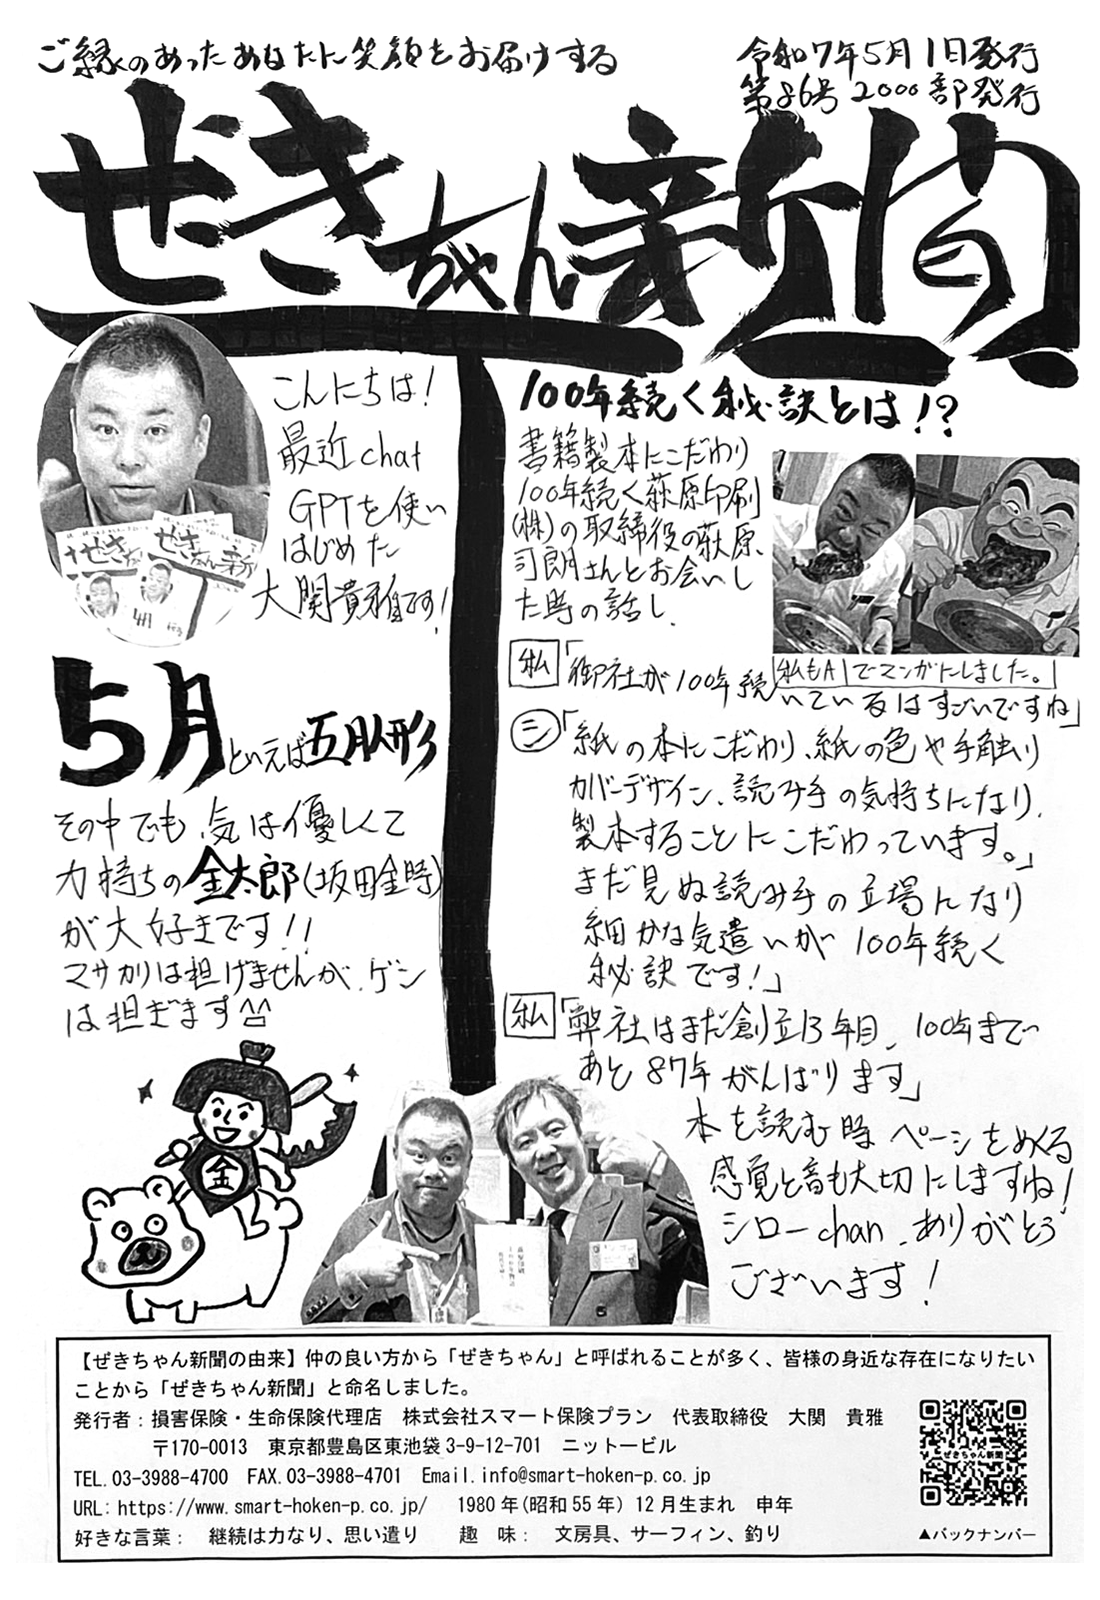 ご縁のあったあなたに笑顔をお届けする
令和7年5月1日発行
第86号 2000部発行
ぜきちゃん新聞
こんにちは!
最近chat
GPTを使い
はじめた
大関貴雅です!
5月といえば五月人形
その中でも、気は優しくて
力持ちの金太郎(坂田金時)
が大好きです!!
マサカリは担げませんが、ゲン
は担ぎます^^
金
100年続く秘訣とは!?
書籍製本にこだわり
100年続く萩原印刷
(株)の取締役の萩原
司朗さんとお会いし
た時の話し.
私もAIでマンガにしました。
私「御社が100年続
いているはすごいですね」
シ「紙の本にこだわり、紙の色や手触り
カバーデザイン、読み手の気持ちになり、
製本することにこだわっています。」
まだ見ぬ読み手の立場になり
細かな気遣いが100年続く
秘訣です!」
私「弊社はまだ創立13年目、100年まで
あと87年がんばります」
本を読む時ページをめくる
感覚と音も大切にしますね!
シローchan、ありがとう
ございます!
【ぜきちゃん新聞の由来】仲の良い方から「ぜきちゃん」と呼ばれることが多く、皆様の身近な存在になりたい
ことから「ぜきちゃん新聞」と命名しました。
発行者:損害保険・生命保険代理店 株式会社スマート保険プラン 代表取締役 大関 貴雅
〒170-0013 東京都豊島区東池袋3-9-12-701 ニットービル
TEL.03-3988-4700 FAX.03-3988-4701 Email.info@smart-hoken-p.co.jp
URL:https://www.smart-hoken-p.co.jp/ 1980年(昭和55年)12月生まれ 申年
好きな言葉: 継続は力なり、思い遣り 趣 味: 文房具、サーフィン、釣り
ぜきちゃん新聞
▲バックナンバー